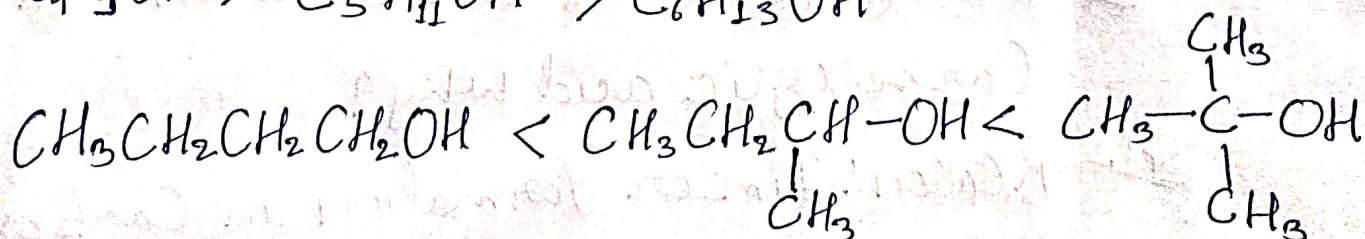 C₅H₁₁OH > C₆H₁₃OH
CH₃
CH₃CH₂CH₂CH₂OH < CH₃CH₂CH–OH < CH₃–C–OH
CH₃ CH₃